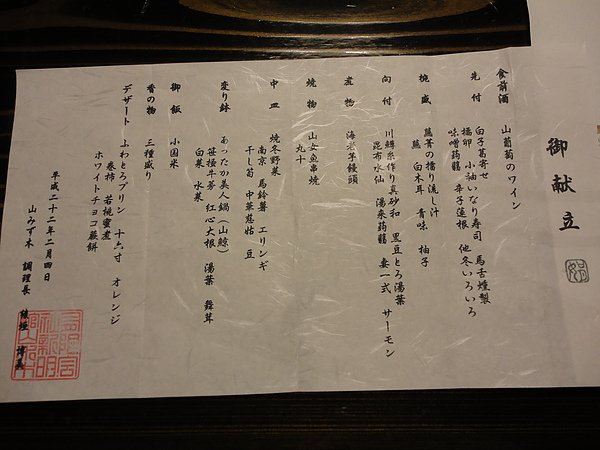 御献立
食前酒 山葡萄のワイン
先付 白子葛寄せ
小袖いなり寿司 馬舌燻製
橘卵
味噌蒟蒻 辛子蓮根 他冬いろいろ
椀盛 蕪菁の擂り流し汁
蕪 白木耳 青味 柚子
向付 川鱒糸作り真砂和 黒豆とろ湯葉
昆布水仙 湯来蒟蒻 妻一式 サーモン
煮物 海老芋饅頭
焼物 山女魚串焼
丸十
中皿 焼冬野菜
南京 馬鈴薯 エリンギ
干し筍 中華慈姑 豆
変り鉢 あったか美人鍋(山鯨)
笹掻牛蒡 紅心大根 湯葉 舞茸
白菜 水菜
御飯 小国米
香の物 三種盛り
デザート ふわとろプリン 十六寸 オレンジ
巻柿 若桃蜜煮
ホワイトチョコ蕨餅
平成二十二年二月四日
山みず木 調理長